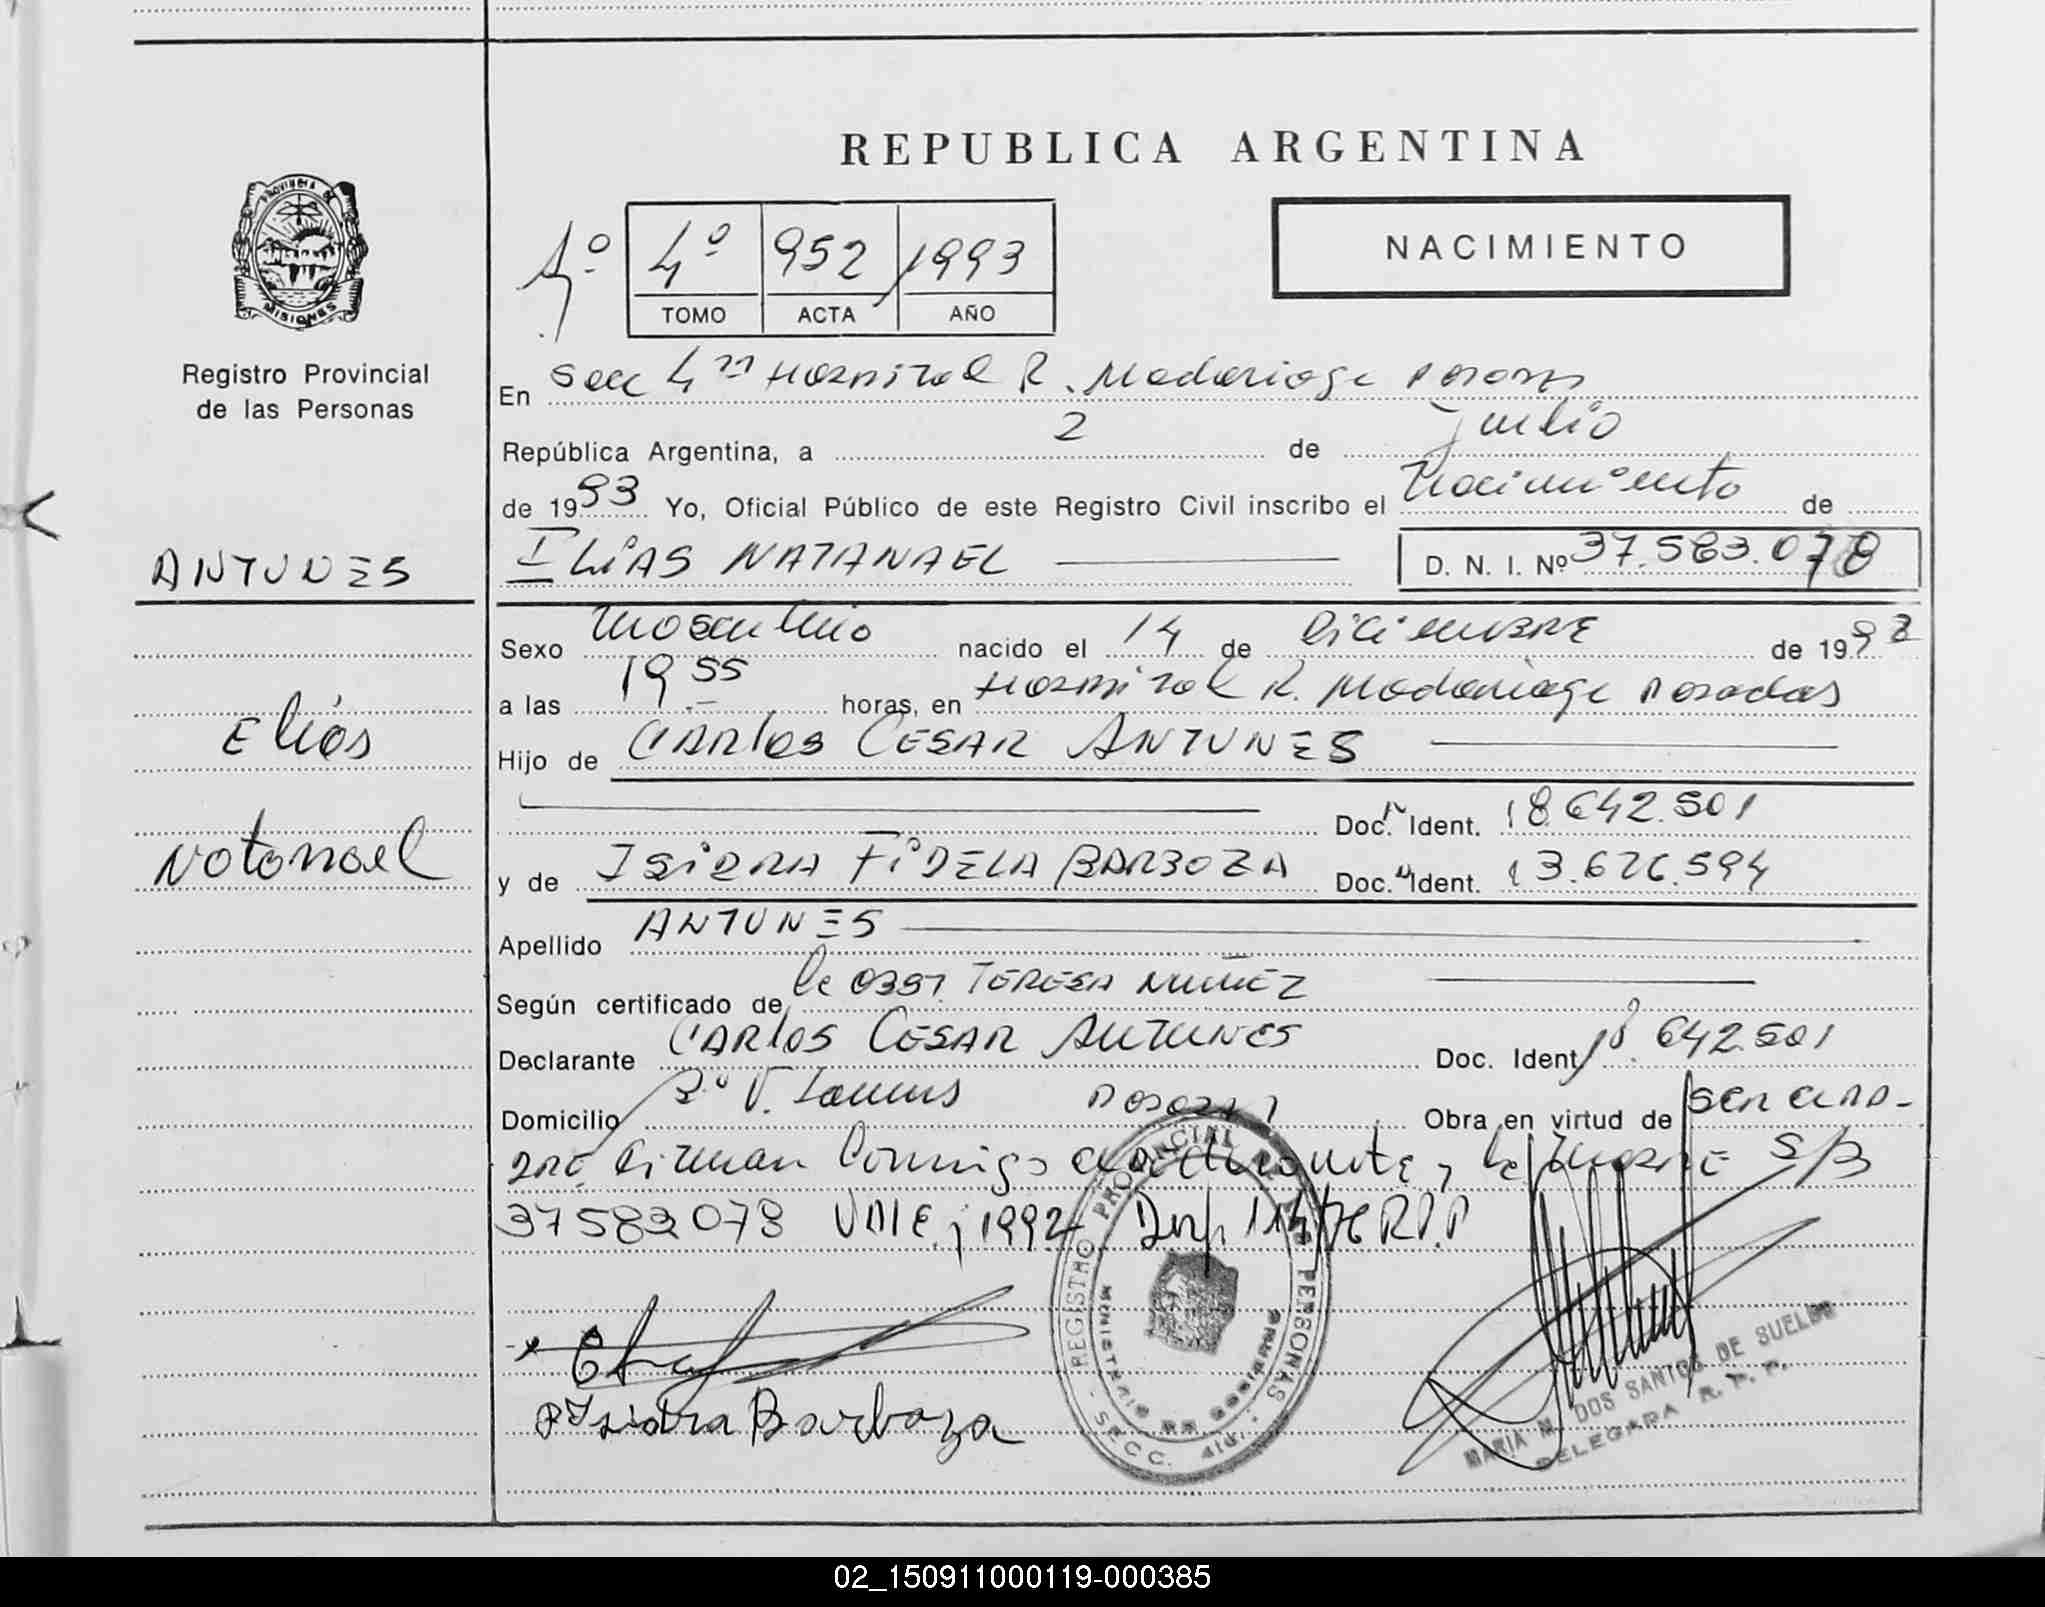 REPUBLICA ARGENTINA
PROVINCIA DE MISIONES
Registro Provincial
de las Personas
4º 952 1993
TOMO ACTA AÑO
NACIMIENTO
En Secc 4ta Hospital R. Madariaga Posadas
República Argentina, a 2 de Julio
de 1993 Yo, Oficial Público de este Registro Civil inscribo el Nacimiento de
ANTUNES
Elías
Natanael
ELIAS NATANAEL D. N. I. Nº 37.583.078
Sexo Masculino nacido el 14 de Diciembre de 1992
a las 19 55 horas, en Hospital R. Madariaga Posadas
Hijo de CARLOS CESAR ANTUNES
Doc. Ident. 18.642.501
y de ISIDRA FIDELA BARBOZA Doc. Ident. 13.626.594
Apellido ANTUNES
Según certificado de la Obst. TERESA NUÑEZ
Declarante CARLOS CESAR ANTUNES Doc. Ident. 18.642.501
Domicilio Posadas Obra en virtud de ser el pa-
dre, firman conmigo el declarante, la madre S/B
37583078 Vale; 1992 Disp 114/76 R.P.P
Isidra Barboza
REGISTRO PROVINCIAL DE LAS PERSONAS
MINISTERIO DE GOBIERNO
SECC. 4ta.
MARIA M. DOS SANTOS DE SUELDO
DELEGADA R. P. P.
02_150911000119-000385